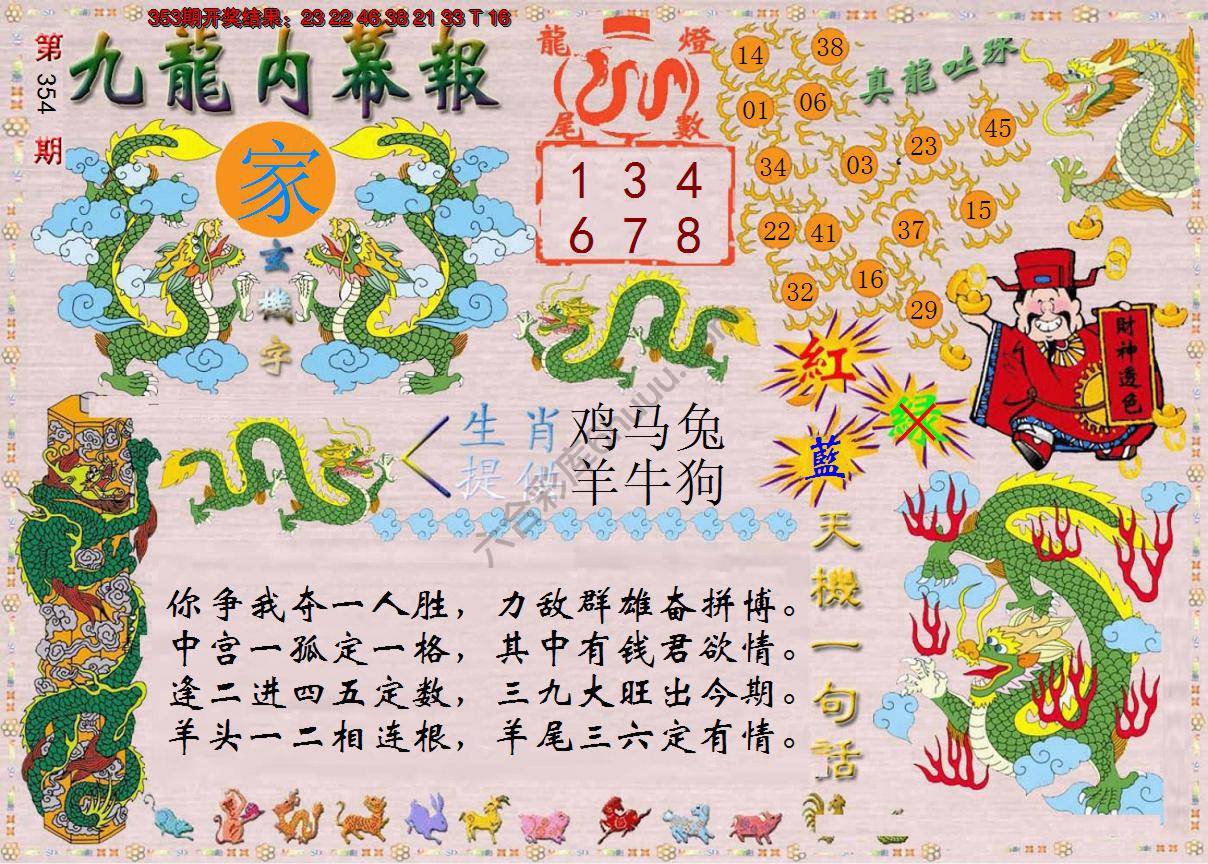 353期开奖结果：23 22 46 38 21 33 T 16
第354期
九龍内幕報
家
玄機字
龍燈
尾數
1 3 4
6 7 8
真龍吐珠
14 38
01 06
34 03 23 45
22 41 37 15
32 16 29
紅
绿
藍
財神透色
生肖 鸡马兔
提供 羊牛狗
你争我夺一人胜，力敌群雄奋拼博。
中宫一孤定一格，其中有钱君欲情。
逢二进四五定数，三九大旺出今期。
羊头一二相连根，羊尾三六定有情。
天機一句話